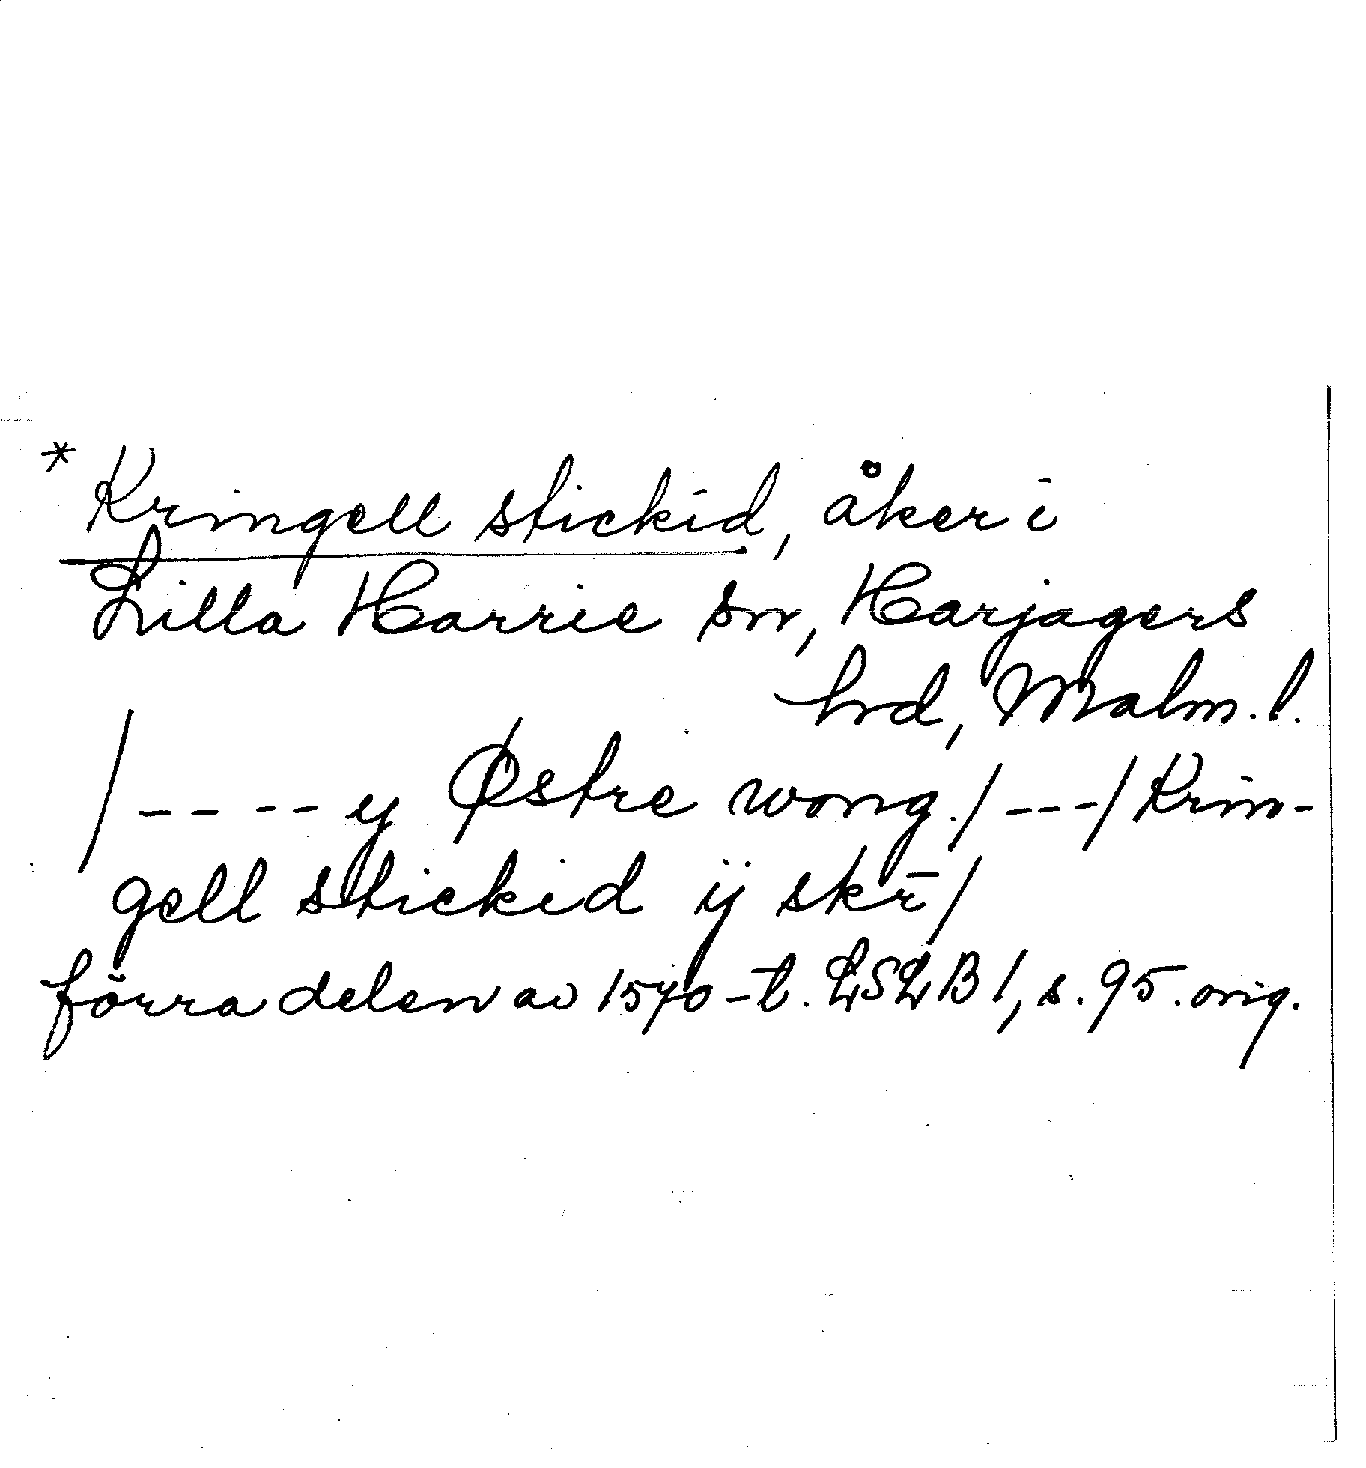 * Kringell stickid, åker i
Lilla Harrie sn, Harjagers
hrd, Malm. l.
/---- y Østre wong./---/ Krin-
gell stickid ij skr̄/
förra delen av 1570-t. LSLB 1, s. 95. orig.